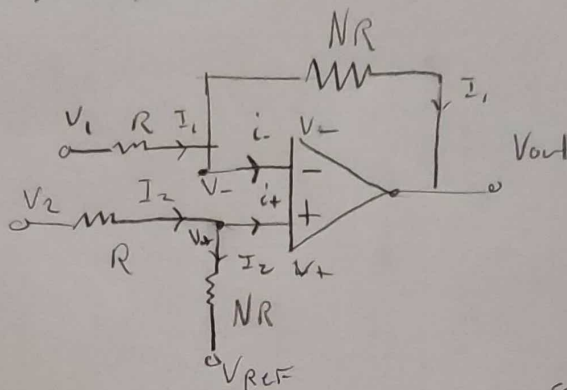 NR
I₁
V₁ R I₁ i- V-
V- - Vout
V₂ I₂ i+ +
R V+ I₂ V+
NR
VREF